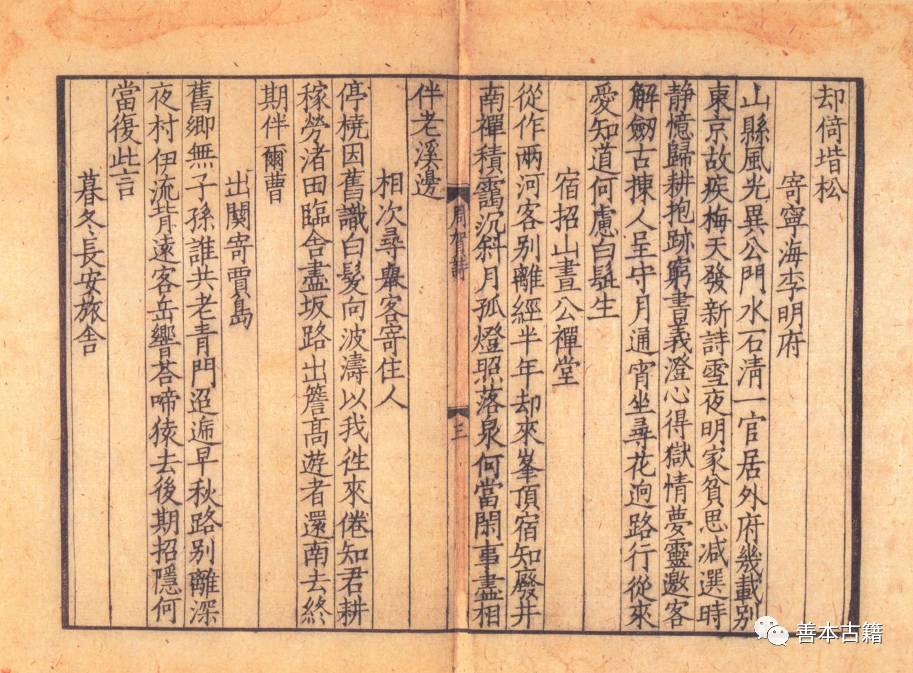 却倚堦松
寄寧海李明府
山縣風光異公門水石清一官居外府幾載别
東京故疾梅天發新詩雪夜明家貧思减選時
静憶歸耕抱跡窮書義澄心得獄情夢靈邀客
解劒古揀人呈守月通宵坐尋花逈路行從來
愛知道何慮白髭生
宿招山晝公禪堂
從作兩河客别離經半年却來峯頂宿知廢井
南禪積靄沉斜月孤燈照落泉何當閑事盡相
周賀詩
三
伴老溪邊
相次尋舉客寄住人
停橈因舊識白髮向波濤以我徃來倦知君耕
稼勞渚田臨舍盡坂路出簷髙遊者還南去終
期伴爾曹
出關寄賈島
舊鄉無子孫誰共老青門迢遞早秋路别離深
夜村伊流背逺客岳響荅啼猿去後期招隱何
當復此言
暮冬長安旅舎
善本古籍